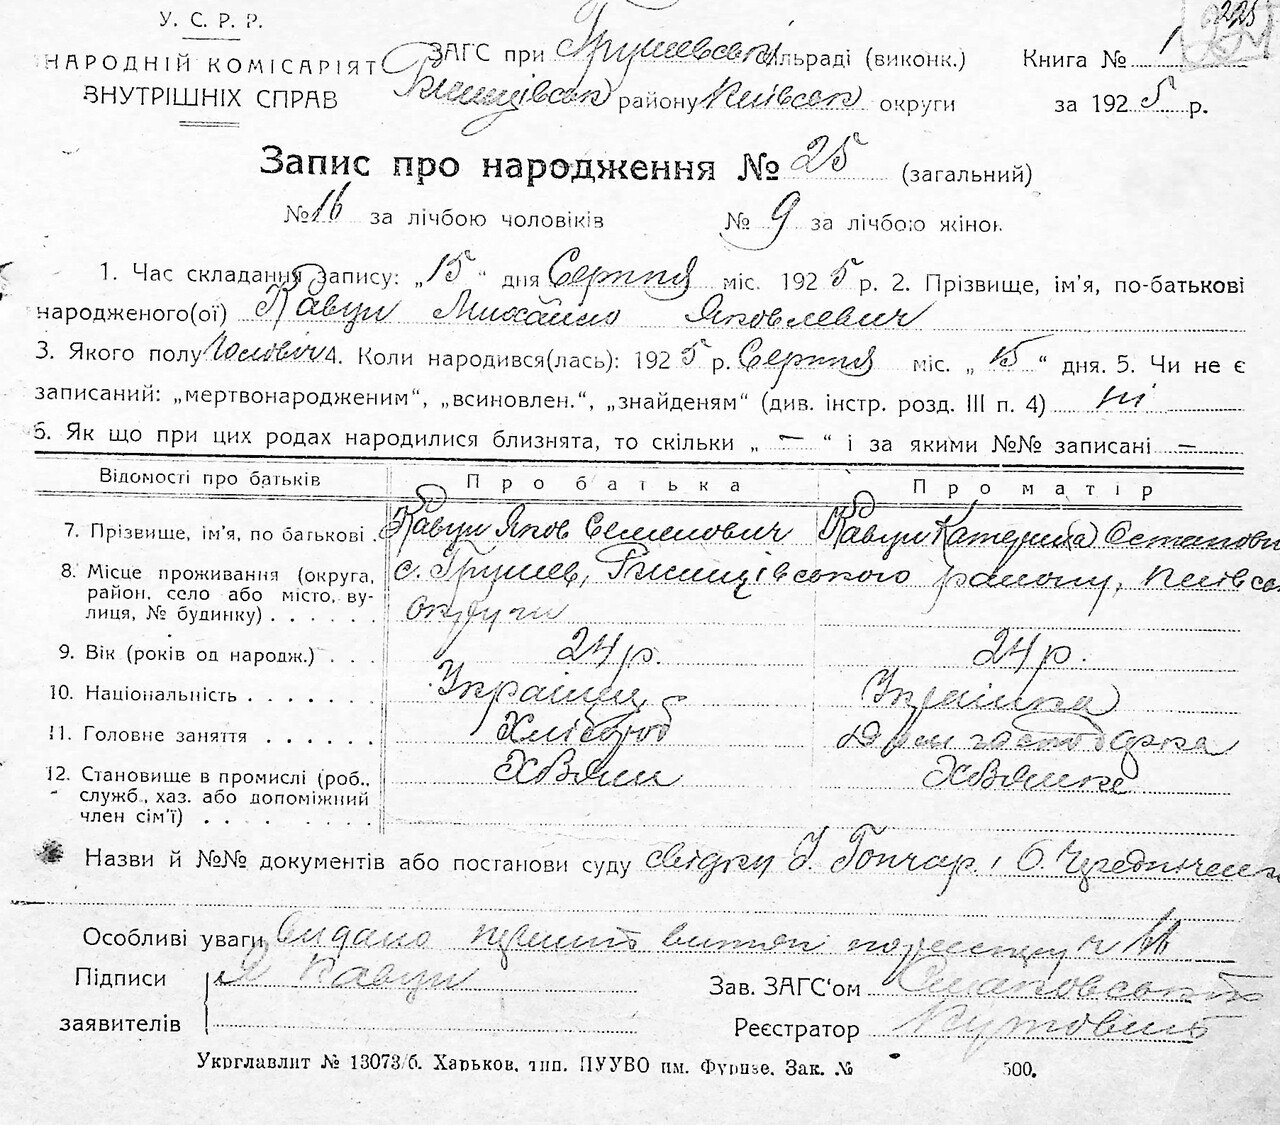 У. С. Р. Р.
НАРОДНІЙ КОМІСАРІЯТ
ВНУТРІШНІХ СПРАВ
ЗАГС при Грушевській сільраді (виконк.)
Ржищівськ району Київськ округи
Книга № 1
за 1925 р.
225
Запис про народження № 25 (загальний)
№ 16 за лічбою чоловіків № 9 за лічбою жінок
1. Час складання запису: „15“ дня Серпня міс. 1925 р. 2. Прізвище, ім'я, по-батькові
народженого(ої) Кавун Михайло Яковлевич
3. Якого полу Чоловіч 4. Коли народився(лась): 1925 р. Серпня міс. „15“ дня. 5. Чи не є
записаний: „мертвонародженим“, „всиновлен.“, „знайденям“ (див. інстр. розд. III п. 4) ні
6. Як що при цих родах народилися близнята, то скільки „ — “ і за якими №№ записані —
Відомості про батьків Про батька Про матір
7. Прізвище, ім'я, по батькові . Кавун Яков Семенович Кавун Катерина Остаповн
8. Місце проживання (округа, с. Грушев, Ржищівського району, Київсь
район, село або місто, ву-
лиця, № будинку) . . . . . . округи
9. Вік (років од народж.) . . . 24 р. 24 р.
10. Національність . . . . . . . Українец Українка
11. Головне заняття . . . . . . Хлібороб Дом господарка
12. Становище в промислі (роб., Хазяин Хазяйка
служб., хаз. або допоміжний
член сім'ї) . . . . . . . .
Назви й №№ документів або постанови суду свідки І. Гончар і О. Чередниченко
Особливі уваги видано витяг по реєстру ч 16
Підписи Я Кавун
заявителів
Зав. ЗАГС'ом
Реєстратор
Укрглавлит № 13073/б. Харьков, тип. ПУУВО им. Фрунзе. Зак. № 500.